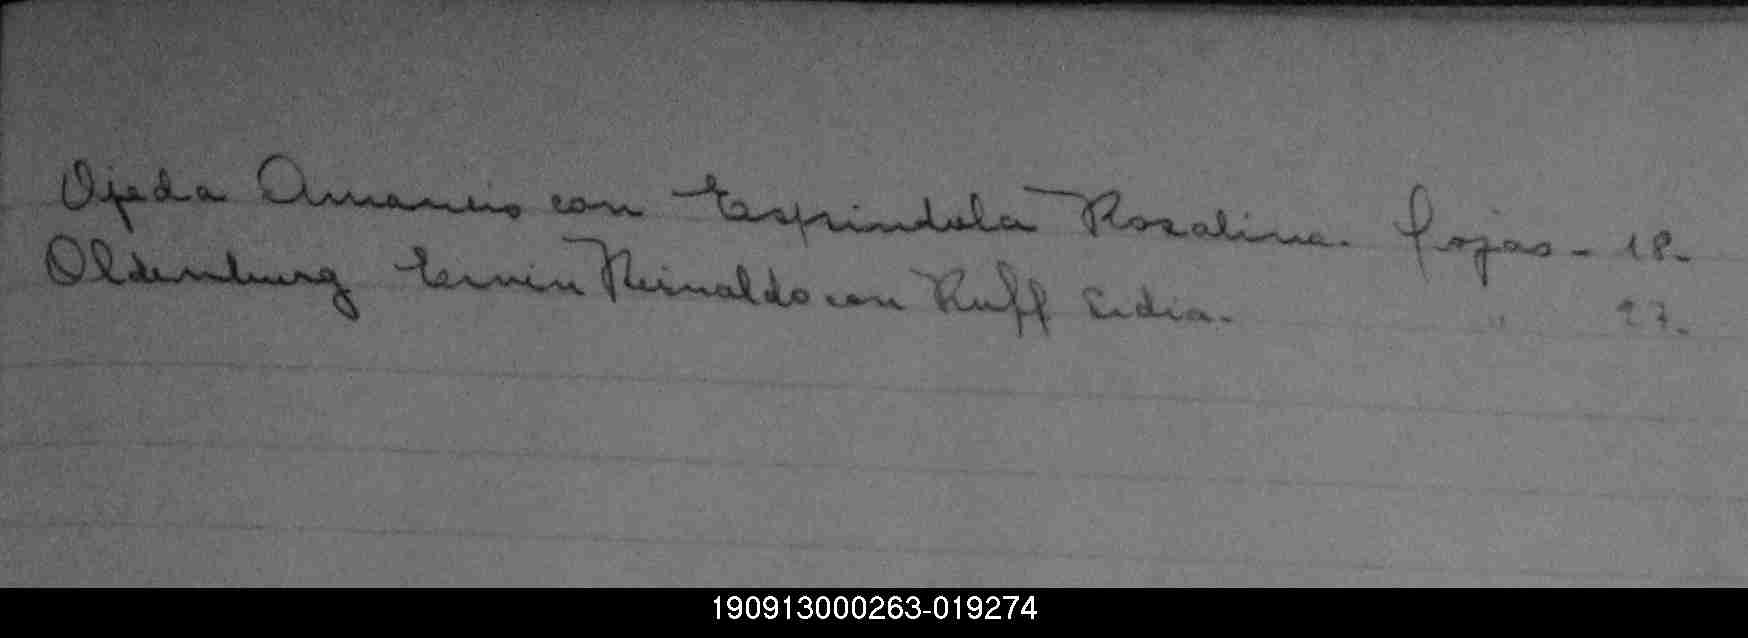 Ojeda Amancio con Espindola Rosalina. fojas - 18.
Oldenburg Ervin Reinaldo con Ruff Lidia. " 27.
190913000263-019274